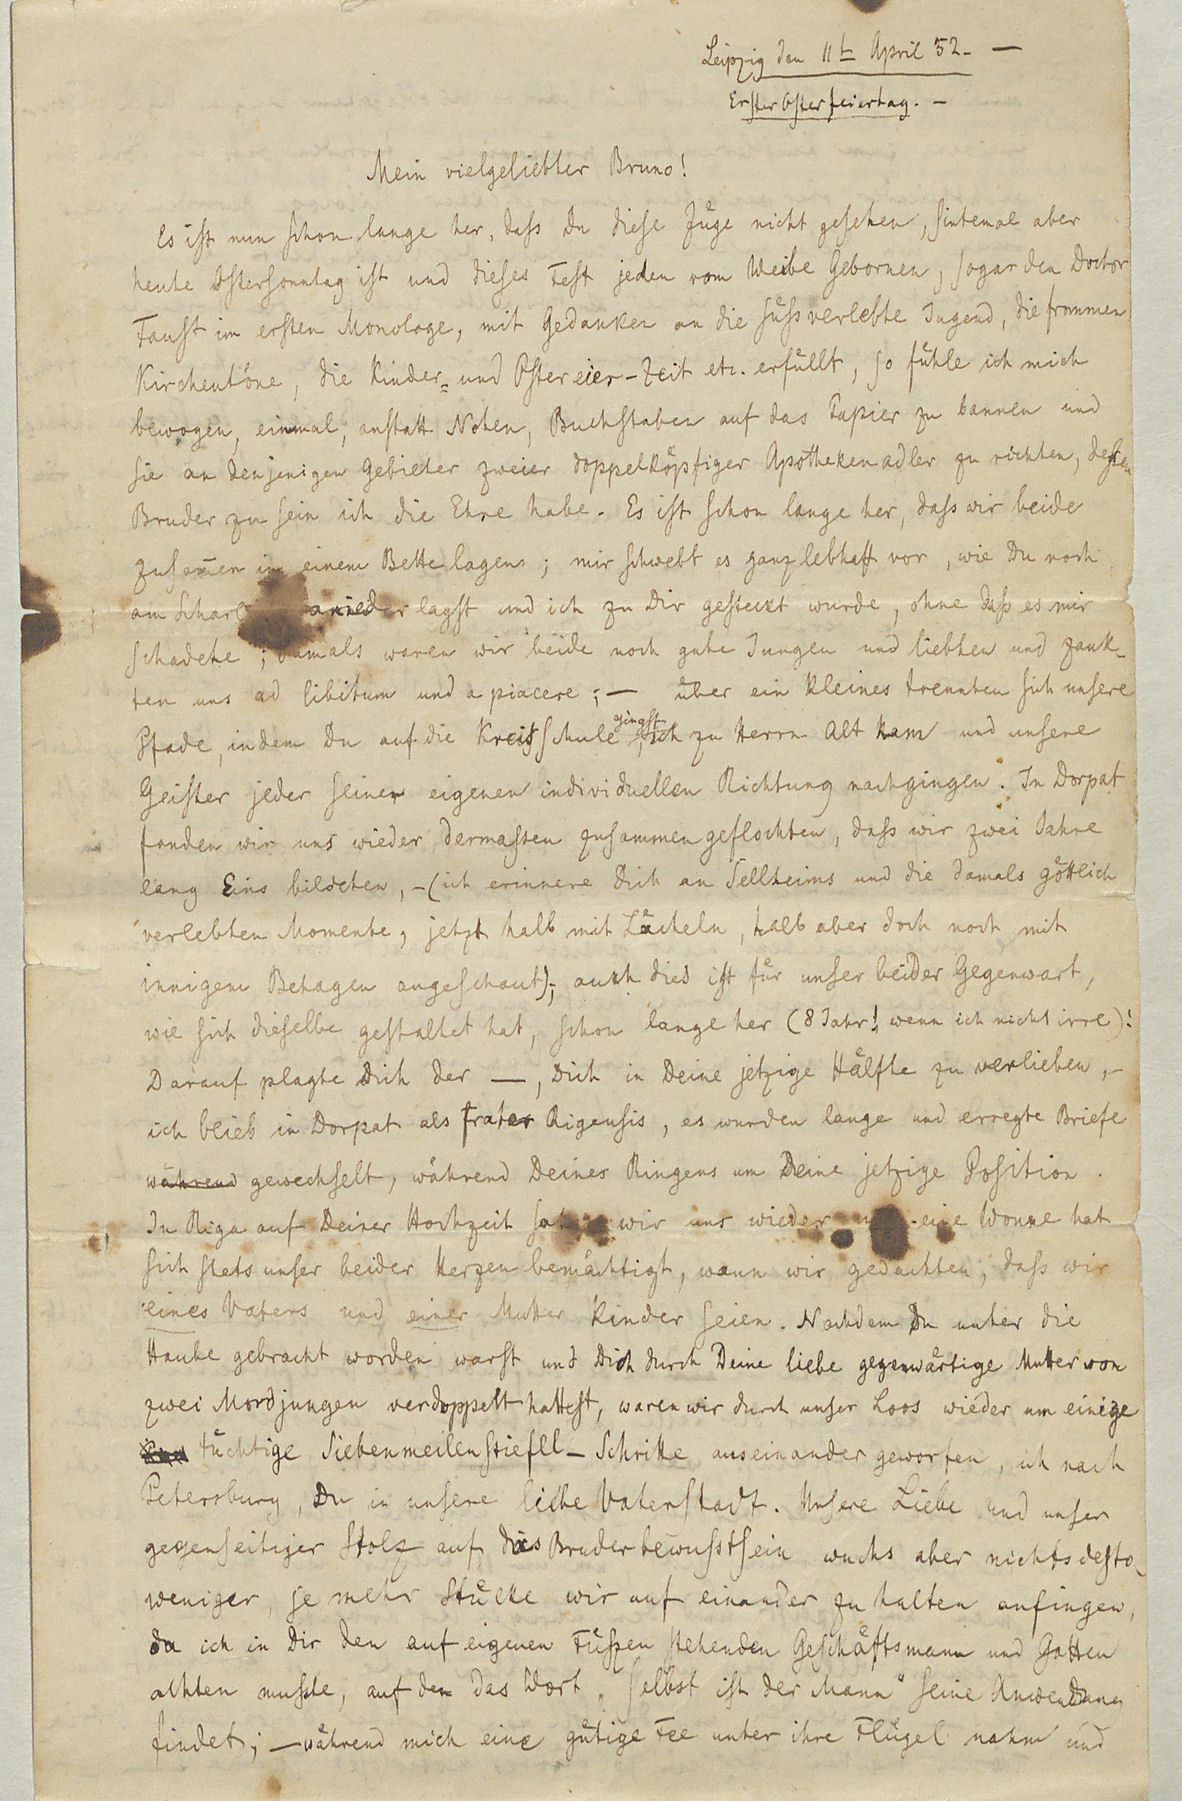 Leipzig den 11t April 52. —
Erster Osterfeiertag. —
Mein vielgeliebter Bruno!
Es ist nun schon lange her, dass Du diese Züge nicht gesehen, sintemal aber
heute Ostersonntag ist und dieses Fest jeden vom Weibe Gebornen, sogar den Doctor
Faust im ersten Monologe, mit Gedanken an die süss verlebte Jugend, die frommen
Kirchentöne, die Kinder= und Ostereier-Zeit etc. erfüllt, so fühle ich mich
bewogen, einmal, anstatt Noten, Buchstaben auf das Papier zu bannen und
sie an denjenigen Gebieter zweier doppelköpfiger Apothekenadler zu richten, dessen
Bruder zu sein ich die Ehre habe. Es ist schon lange her, dass wir beide
zusam̅en in einem Bette lagen; mir schwebt es ganz lebhaft vor, wie Du noch
am Scharl darnieder lagst und ich zu Dir gesteckt wurde, ohne dass es mir
schadete; damals waren wir beide noch gute Jungen und liebten und zank-
ten uns ad libitum und a piacere; — über ein Kleines trennten sich unsere
Pfade, indem Du auf die Kreisschule gingst, ich zu Herrn Alt kam und unsere
Geister jeder seiner eigenen individuellen Richtung nachgingen. In Dorpat
fanden wir uns wieder dermassen zusammengeflochten, dass wir zwei Jahre
lang Eins bildeten, – (ich erinnere Dich an Sellheims und die damals göttlich
verlebten Momente, jetzt halb mit Lächeln, halb aber doch noch mit
innigem Behagen angeschaut); auch dies ist für unser beider Gegenwart,
wie sich dieselbe gestaltet hat, schon lange her (8 Jahr!, wenn ich nicht irre)!
Darauf plagte Dich der —, Dich in Deine jetzige Hälfte zu verlieben, –
ich blieb in Dorpat als frater Rigensis, es wurden lange und erregte Briefe
während gewechselt, während Deines Ringens um Deine jetzige Position.
In Riga auf Deiner Hochzeit sahen wir uns wieder eine Wonne hat
sich stets unser beider Herzen bemächtigt, wann wir gedachten, dass wir
eines Vaters und einer Mutter Kinder seien. Nachdem Du unter die
Haube gebracht worden warst und Dich durch Deine liebe gegenwärtige Mutter von
zwei Mordjungen verdoppelt hattest, waren wir durch unser Loos wieder um einige
tüchtige Siebenmeilenstiefel-Schritte auseinander geworfen, ich nach
Petersburg, Du in unsere liebe Vaterstadt. Unsere Liebe und unser
gegenseitiger Stolz auf dies Bruderbewusstsein wuchs aber nichtsdesto-
weniger, je mehr Stücke wir auf einander zu halten anfingen,
da ich in Dir den auf eigenen Füssen stehenden Geschäftsmann und Gatten
achten musste, auf den das Wort „Selbst ist der Mann" seine Anwendung
findet; — während mich eine gütige Fee unter ihre Flügel nahm und